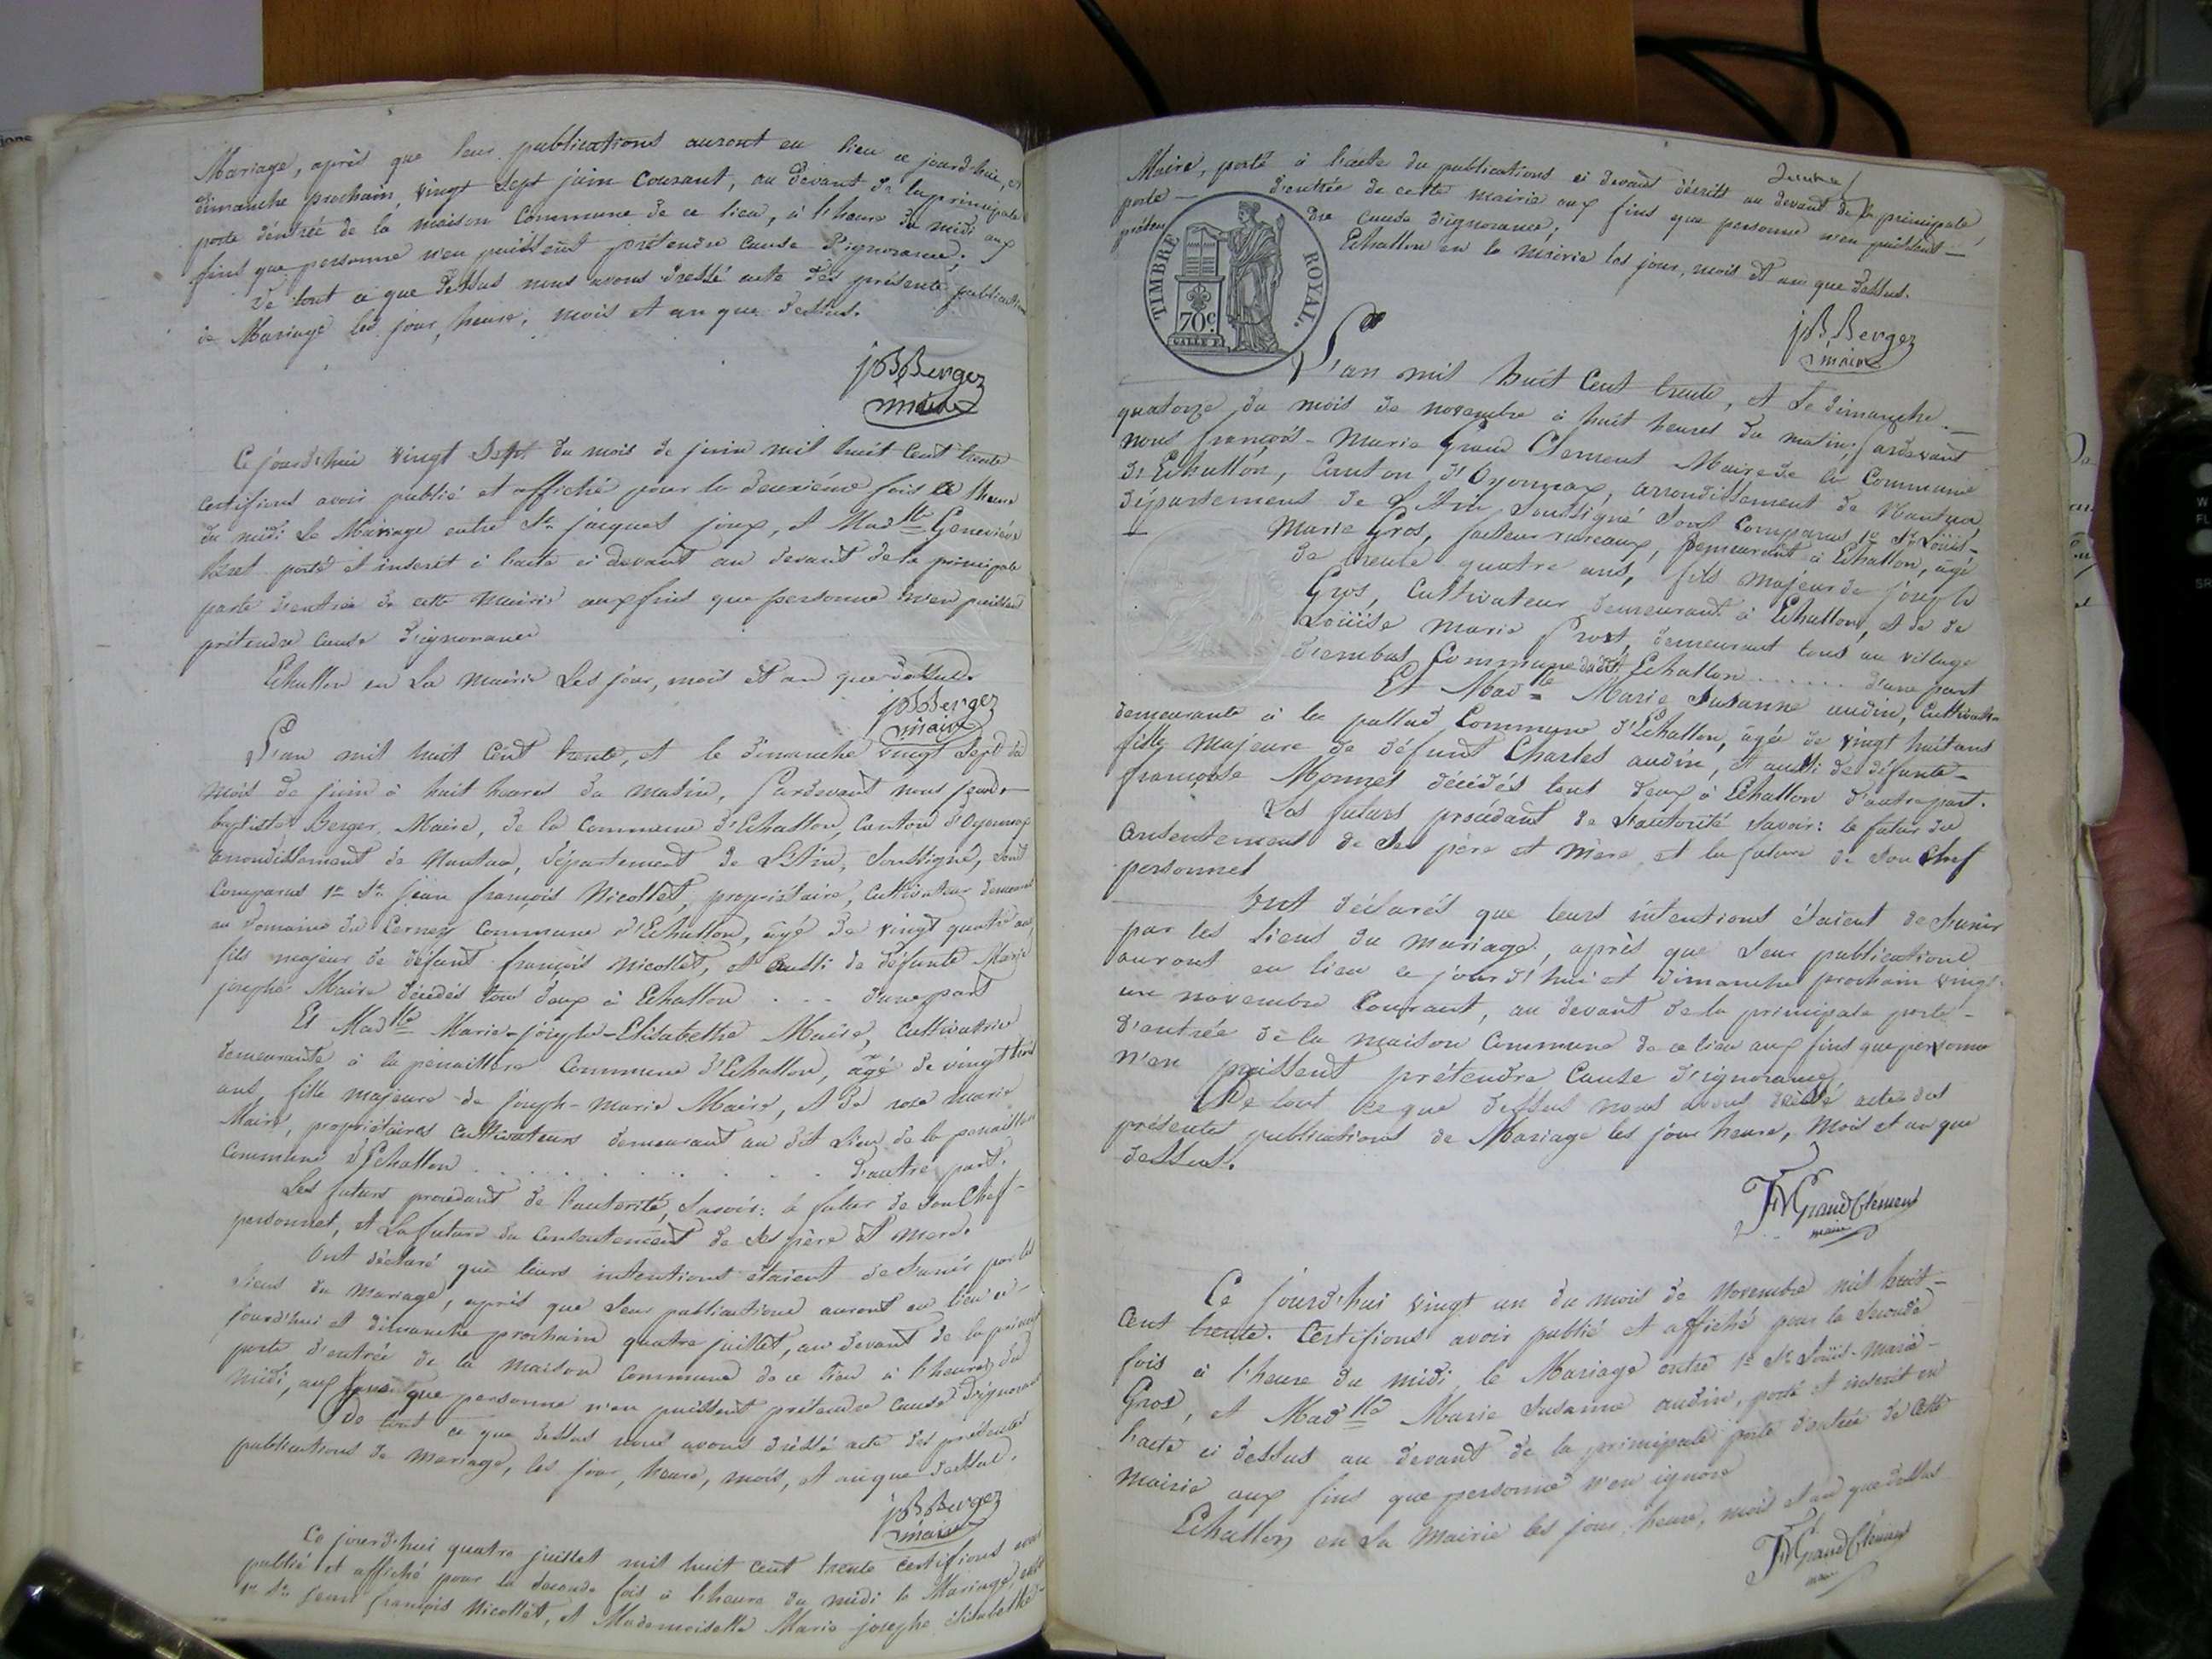 Mariage, après que leur publications auront eu lieu ce jourd'hui, et
dimanche prochain, vingt sept juin courant, au devant de la principale
porte d'entrée de la maison Commune de ce lieu, à l'heure du midi aux
fins que personne n'en puissent prétendre cause d'ignorance.
De tout ce que dessus nous avons dressé acte des présente publication
de Mariage les jour, heure, mois et an que dessus.
JBBerger
maire
Ce jourd'hui vingt Sept du mois de juin mil huit Cent trente
certifions avoir publié et affiché pour la deuxième fois a l'heure
du midi Le Mariage entre Sr. jacques joux, et Madlle Geneviève
porté et inserit à l'acte ci devant au devant de la principale
porte d'entrée de cette Mairie aux fins que personne n'en puissent
prétendre cause d'ignorance
Echallon en La Mairie Les jour, mois et an que dessus.
JBBerger
maire
L'an mil huit Cent trente, et le dimanche vingt Sept du
mois de juin à huit heures du matin, Pardevant nous jean
baptiste Berger, Maire, de la Commune d'Echallon, Canton d'Oyonnax
arrondissement de Nantua, département de L'Ain, Soussigné, Sont
Comparus 1er Sr. jean françois Nicollet, propriétaire, Cultivateur demeurant
au Domaine du Cerney Commune d'Echallon, âgé de vingt quatre ans
fils majeur de défunt françois Nicollet, et aussi de défunte Marie
josephe Maire décédés tous deux à Echallon . . . d'une part
Et Madlle Marie-josephe-Elisabethe Maire, Cultivatrice
demeurante à la penaillère Commune d'Echallon, âgé de vingt trois
ans fille majeure de joseph-marie Maire, et de rose marie
Maire, propriétaires Cultivateurs demeurant au dit Lieu de la penaillère
Commune d'Echallon . . . . . . . . . . d'autre part.
Les futurs procedant de l'autorité, Savoir: le futur de Son Chef
personnel, et La future du Consentement de Ses père et mere.
Ont déclaré que leurs intentions étaient de S'unir par les
liens du mariage, après que Leur publications auront eu lieu ce
jourd'hui et dimanche prochain quatre juillet, au devant de la principale
porte d'entrée de la maison Commune de ce lieu à l'heure du
midi, aux que personne n'en puissent prétendre cause d'ignorance
De tout ce que dessus nous avons dressé acte des présentes
publications de mariage, les jour, heure, mois, et an que dessus.
JBBerger
maire
Ce jourd'hui quatre juillet mil huit cent trente certifions avoir
publié et affiché pour la Seconde fois à l'heure du midi le Mariage entre
1er Sr. jean françois Nicollet, et Mademoiselle Marie josephe élisabethe
Maire, porté à l'acte du publications ci devant décrits au devant de la principale
porte d'entrée de cette mairie aux fins que personne n'en puissent
prétendre cause d'ignorance,
Echallon en la mairie les jour, mois et an que dessus.
JBBerger
maire
TIMBRE ROYAL.
70c.
L'an mil huit Cent trente, et Le dimanche
quatorze du mois de novembre à huit heures du matin, Pardevant
nous françois-Marie Grand Clement Maire de la Commune
d'Echallon, Canton d'Oyonnax, arrondissement de Nantua,
département de L'Ain Soussigné Sont Comparus 1er Sr. Loüis-
Marie Gros, facteur rureaux, Demeurant à Echallon, âgé
de trente quatre ans, fils majeur de joseph
Gros, Cultivateur demeurant à Echallon, et de
Loüise Marie Prost, demeurant tous au village
d'enbas Commune dudit Echallon . . . . . . d'une part
Et Madlle Marie Susanne audin, Cultivatrice
demeurante à la pallud Commune d'Echallon, âgée de vingt huit ans
fille majeure de défunt Charles audin, et aussi de défunte
françoise Monnet décédés tout deux à Echallon d'autre part.
Les futurs procédant de l'autorité Savoir: le futur du
Consentement de Ses père et mère, et la future de Son Chef
personnel
Ont déclarés que leurs intentions étaient de S'unir
par les liens du mariage, après que Leur publications
auront eu lieu ce jourd'hui et dimanche prochain vingt
un novembre Courant, au devant de la principale porte
d'entrée de la maison Commune de ce lieu aux fins que personne
n'en puissent prétendre cause d'ignorance,
De tout ce que dessus nous avons dressé acte des
présentes publications de Mariage les jour heure, mois et an que
dessus.
FMGrandClement
maire
Ce jourd'hui vingt un du mois de Novembre mil huit
Cent trente. Certifions avoir publié et affiché pour la Seconde
fois à l'heure du midi le Mariage entre 1er Sr. Loüis-Marie
Gros, et Madlle Marie Susanne audin, porté et inserit en
l'acte ci dessus au devant de la principale porte d'entrée de cette
mairie aux fins que personne n'en ignore
Echallon en La Mairie les jour, heure, mois et an que dessus
FMGrandClément
maire